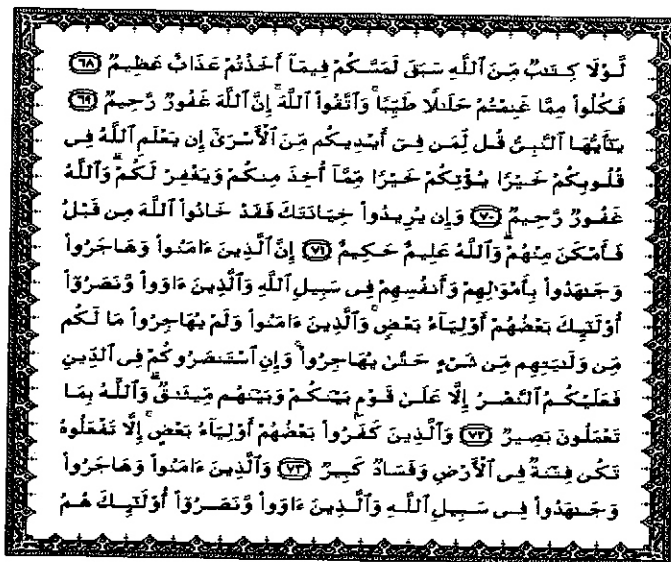 لَّوْلَا كِتَٰبٌ مِّنَ ٱللَّهِ سَبَقَ لَمَسَّكُمْ فِيمَآ أَخَذْتُمْ عَذَابٌ عَظِيمٌ ﴿٦٨﴾
فَكُلُوا۟ مِمَّا غَنِمْتُمْ حَلَٰلًا طَيِّبًا ۚ وَٱتَّقُوا۟ ٱللَّهَ ۚ إِنَّ ٱللَّهَ غَفُورٌ رَّحِيمٌ ﴿٦٩﴾
يَٰٓأَيُّهَا ٱلنَّبِىُّ قُل لِّمَن فِىٓ أَيْدِيكُم مِّنَ ٱلْأَسْرَىٰٓ إِن يَعْلَمِ ٱللَّهُ فِى
قُلُوبِكُمْ خَيْرًا يُؤْتِكُمْ خَيْرًا مِّمَّآ أُخِذَ مِنكُمْ وَيَغْفِرْ لَكُمْ ۗ وَٱللَّهُ
غَفُورٌ رَّحِيمٌ ﴿٧٠﴾ وَإِن يُرِيدُوا۟ خِيَانَتَكَ فَقَدْ خَانُوا۟ ٱللَّهَ مِن قَبْلُ
فَأَمْكَنَ مِنْهُمْ ۗ وَٱللَّهُ عَلِيمٌ حَكِيمٌ ﴿٧١﴾ إِنَّ ٱلَّذِينَ ءَامَنُوا۟ وَهَاجَرُوا۟
وَجَٰهَدُوا۟ بِأَمْوَٰلِهِمْ وَأَنفُسِهِمْ فِى سَبِيلِ ٱللَّهِ وَٱلَّذِينَ ءَاوَوا۟ وَّنَصَرُوٓا۟
أُو۟لَٰٓئِكَ بَعْضُهُمْ أَوْلِيَآءُ بَعْضٍ ۚ وَٱلَّذِينَ ءَامَنُوا۟ وَلَمْ يُهَاجِرُوا۟ مَا لَكُم
مِّن وَلَٰيَتِهِم مِّن شَىْءٍ حَتَّىٰ يُهَاجِرُوا۟ ۚ وَإِنِ ٱسْتَنصَرُوكُمْ فِى ٱلدِّينِ
فَعَلَيْكُمُ ٱلنَّصْرُ إِلَّا عَلَىٰ قَوْمٍۭ بَيْنَكُمْ وَبَيْنَهُم مِّيثَٰقٌ ۗ وَٱللَّهُ بِمَا
تَعْمَلُونَ بَصِيرٌ ﴿٧٢﴾ وَٱلَّذِينَ كَفَرُوا۟ بَعْضُهُمْ أَوْلِيَآءُ بَعْضٍ ۚ إِلَّا تَفْعَلُوهُ
تَكُن فِتْنَةٌ فِى ٱلْأَرْضِ وَفَسَادٌ كَبِيرٌ ﴿٧٣﴾ وَٱلَّذِينَ ءَامَنُوا۟ وَهَاجَرُوا۟
وَجَٰهَدُوا۟ فِى سَبِيلِ ٱللَّهِ وَٱلَّذِينَ ءَاوَوا۟ وَّنَصَرُوٓا۟ أُو۟لَٰٓئِكَ هُمُ